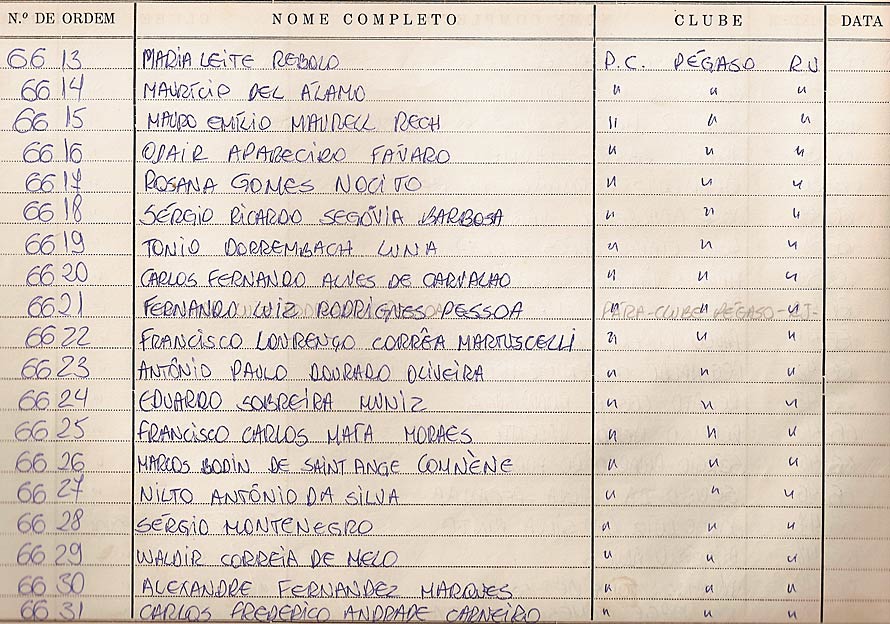 N.º DE ORDEM NOME COMPLETO CLUBE DATA
6613 MARIA LEITE REBOLO P.C. PÉGASO RJ
6614 MAURÍCIO DEL ÁLAMO " " "
6615 MAURO EMÍLIO MAURELL RECH " " "
6616 ODAIR APARECIDO FAVARO " " "
6617 ROSANA GOMES NOCITO " " "
6618 SÉRGIO RICARDO SEGÓVIA BARBOSA " " "
6619 TONIO DORREMBACH LUNA " " "
6620 CARLOS FERNANDO ALVES DE CARVALHO " " "
6621 FERNANDO LUIZ RODRIGNES PESSOA " " "
PÁRA-CLUBE PÉGASO-RJ-
6622 FRANCISCO LOURENÇO CORRÊA MARTUSCELLI " " "
6623 ANTÔNIO PAULO DOURADO OLIVEIRA " " "
6624 EDUARDO SOBREIRA MUNIZ " " "
6625 FRANCISCO CARLOS MATA MORAES " " "
6626 MARCOS BODIN DE SAINT ANGE COMNÈNE " " "
6627 NILTO ANTÔNIO DA SILVA " " "
6628 SÉRGIO MONTENEGRO " " "
6629 WALDIR CORREIA DE MELO " " "
6630 ALEXANDRE FERNANDEZ MARQUES " " "
6631 CARLOS FREDERICO ANDRADE CARNEIRO " " "